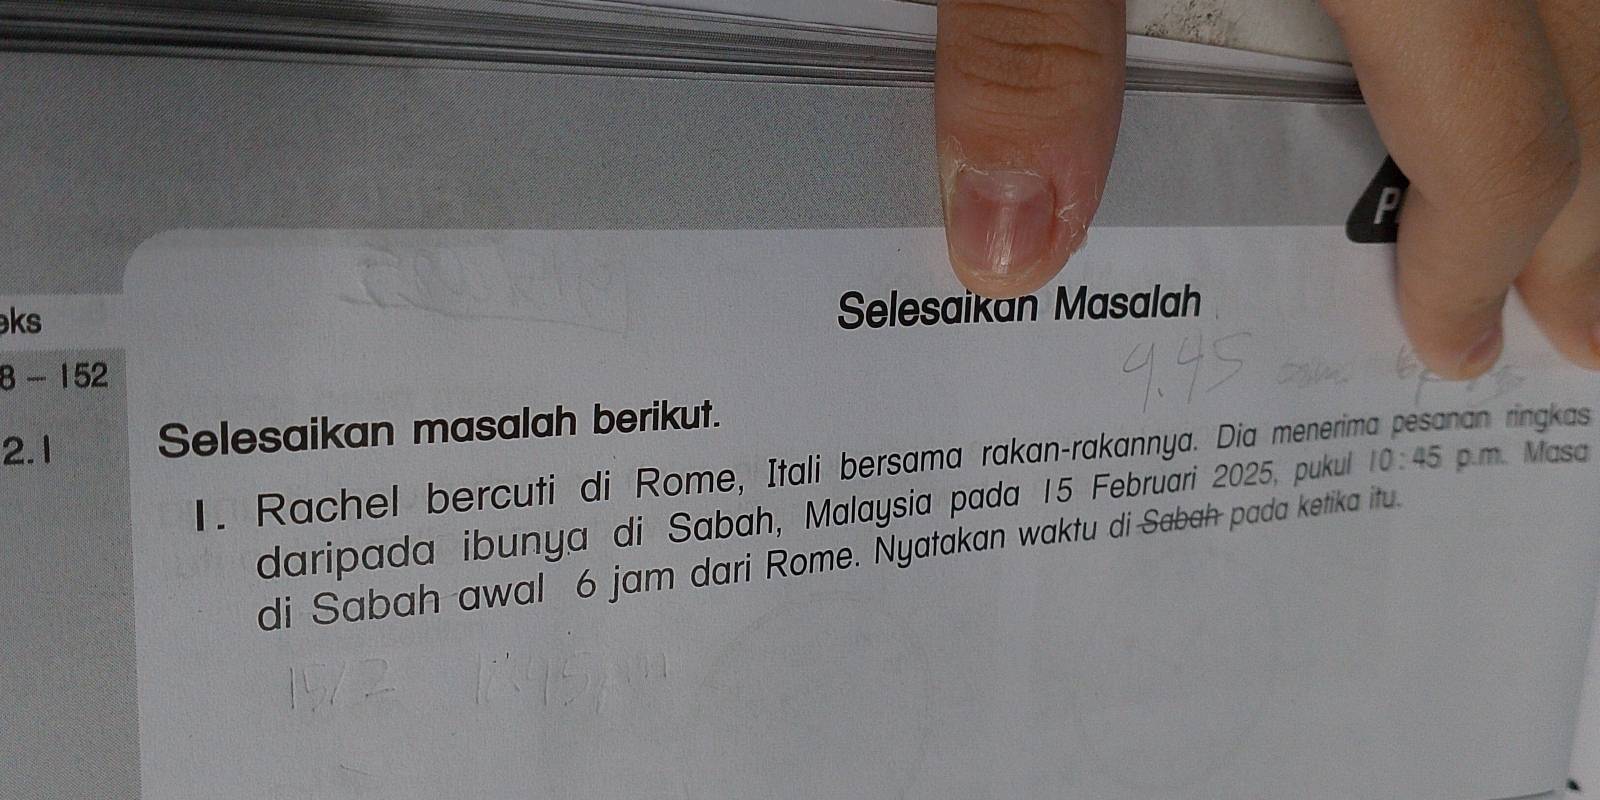 Selesaikan Masalah
8 – 152
4.45
2.1
Selesaikan masalah berikut.
1. Rachel bercuti di Rome, Itali bersama rakan-rakannya. Dia menerima pesanan ringkas
daripada ibunya di Sabah, Malaysia pada 15 Februari 2025, pukul 10:45 p.m. Masa
di Sabah awal 6 jam dari Rome. Nyatakan waktu di Sabah pada ketika itu.
15/2